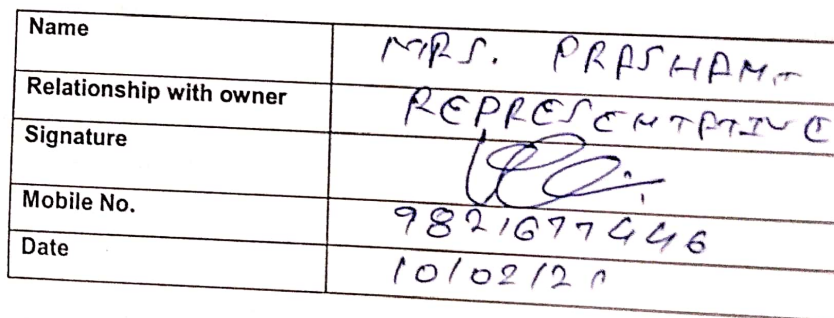 Name MRS. PRASHANT
Relationship with owner REPRESENTATIVE
Signature
Mobile No. 9821677446
Date